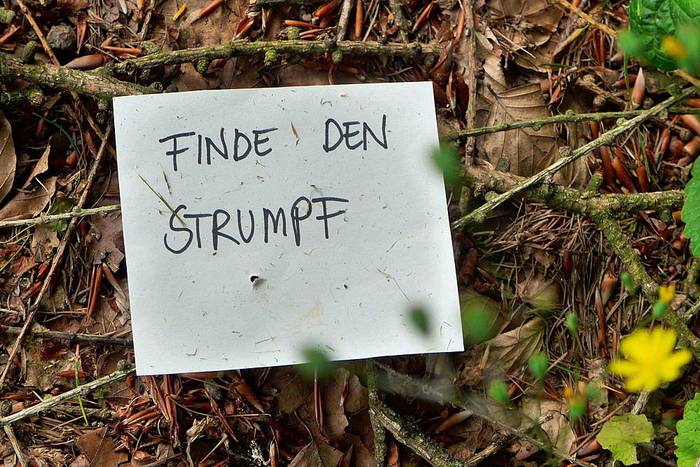 FINDE DEN
STRUMPF